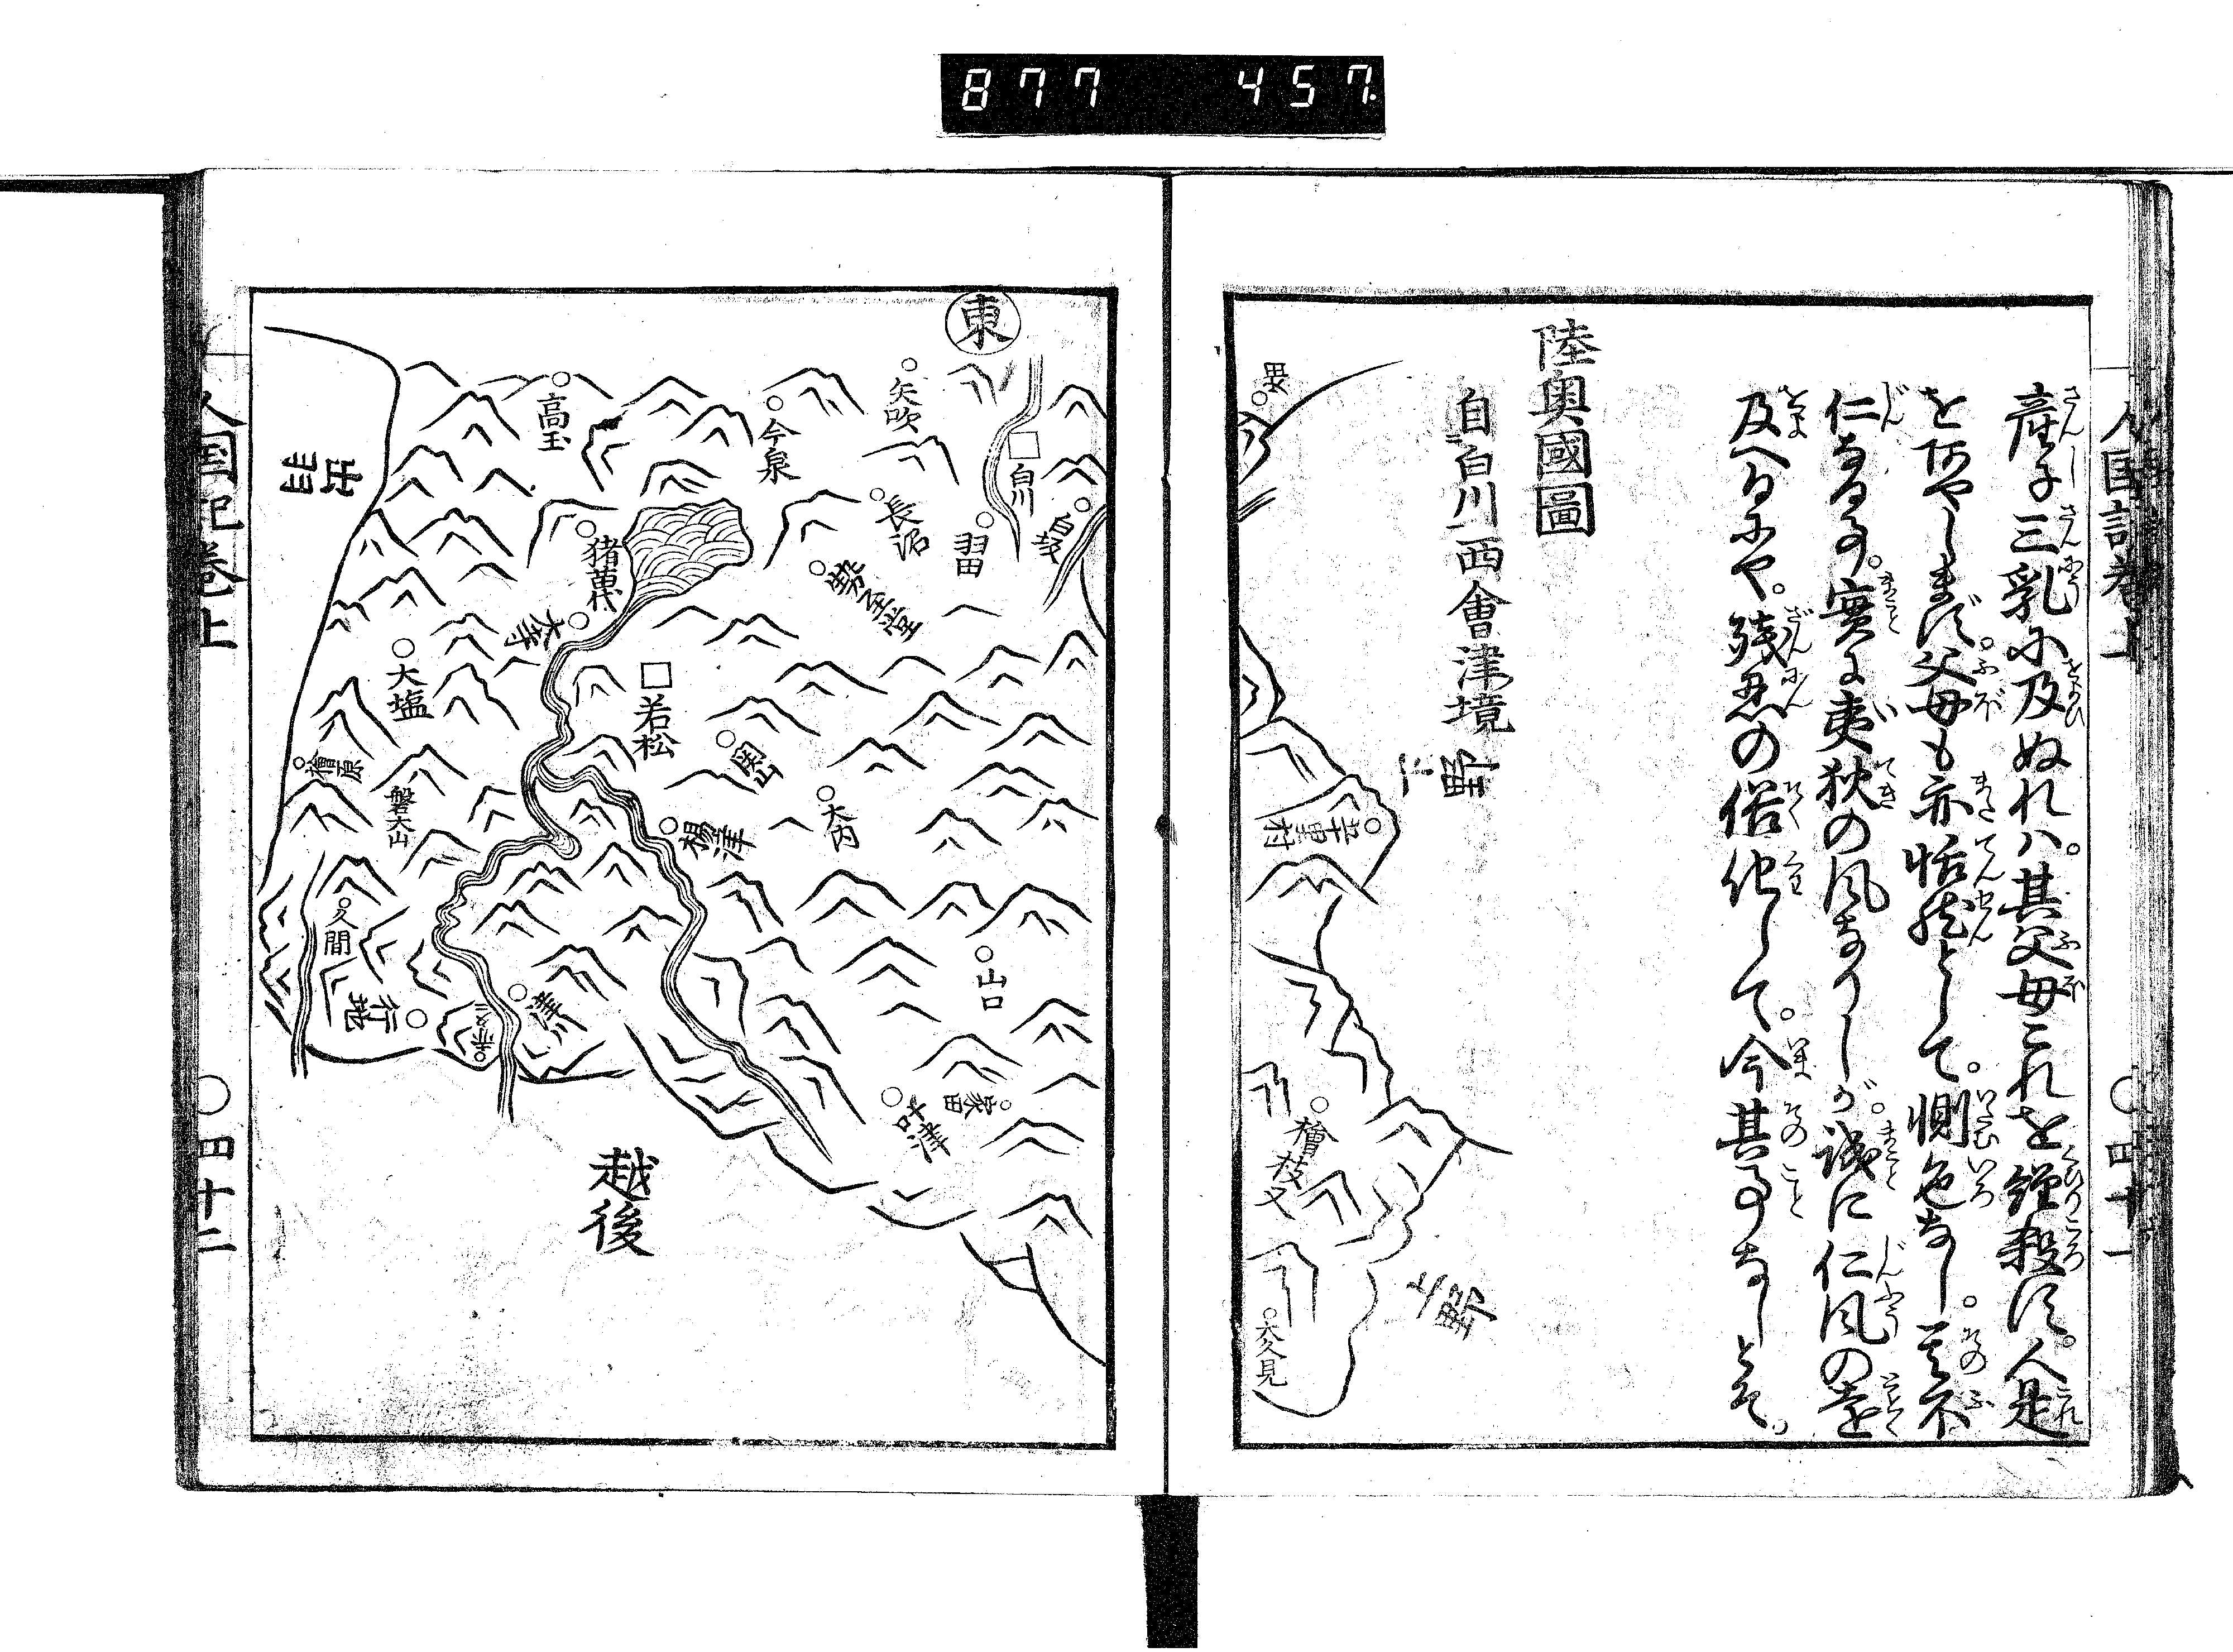 877 457
産子三乳に及ぬれハ。其父母これを縊殺す。人是
をあやしまず。父母も亦恬然として。惻色なし。其不
仁なる事。實に夷狄の風なりしが。誠に仁風の遠く
及へるにや。残忍の俗化して。今其事なしとぞ。
陸奥國圖
自白川西會津境
下野
上野
檜枝又
大久見
人国記巻上
四十一
東
白川
矢吹
今泉
高玉
長沼
勢至堂
猪苗代
大寺
若松
関山
大内
楊津
大塩
檜原
磐大山
久間
津川
山口
叶津
越後
人国記巻上
四十二